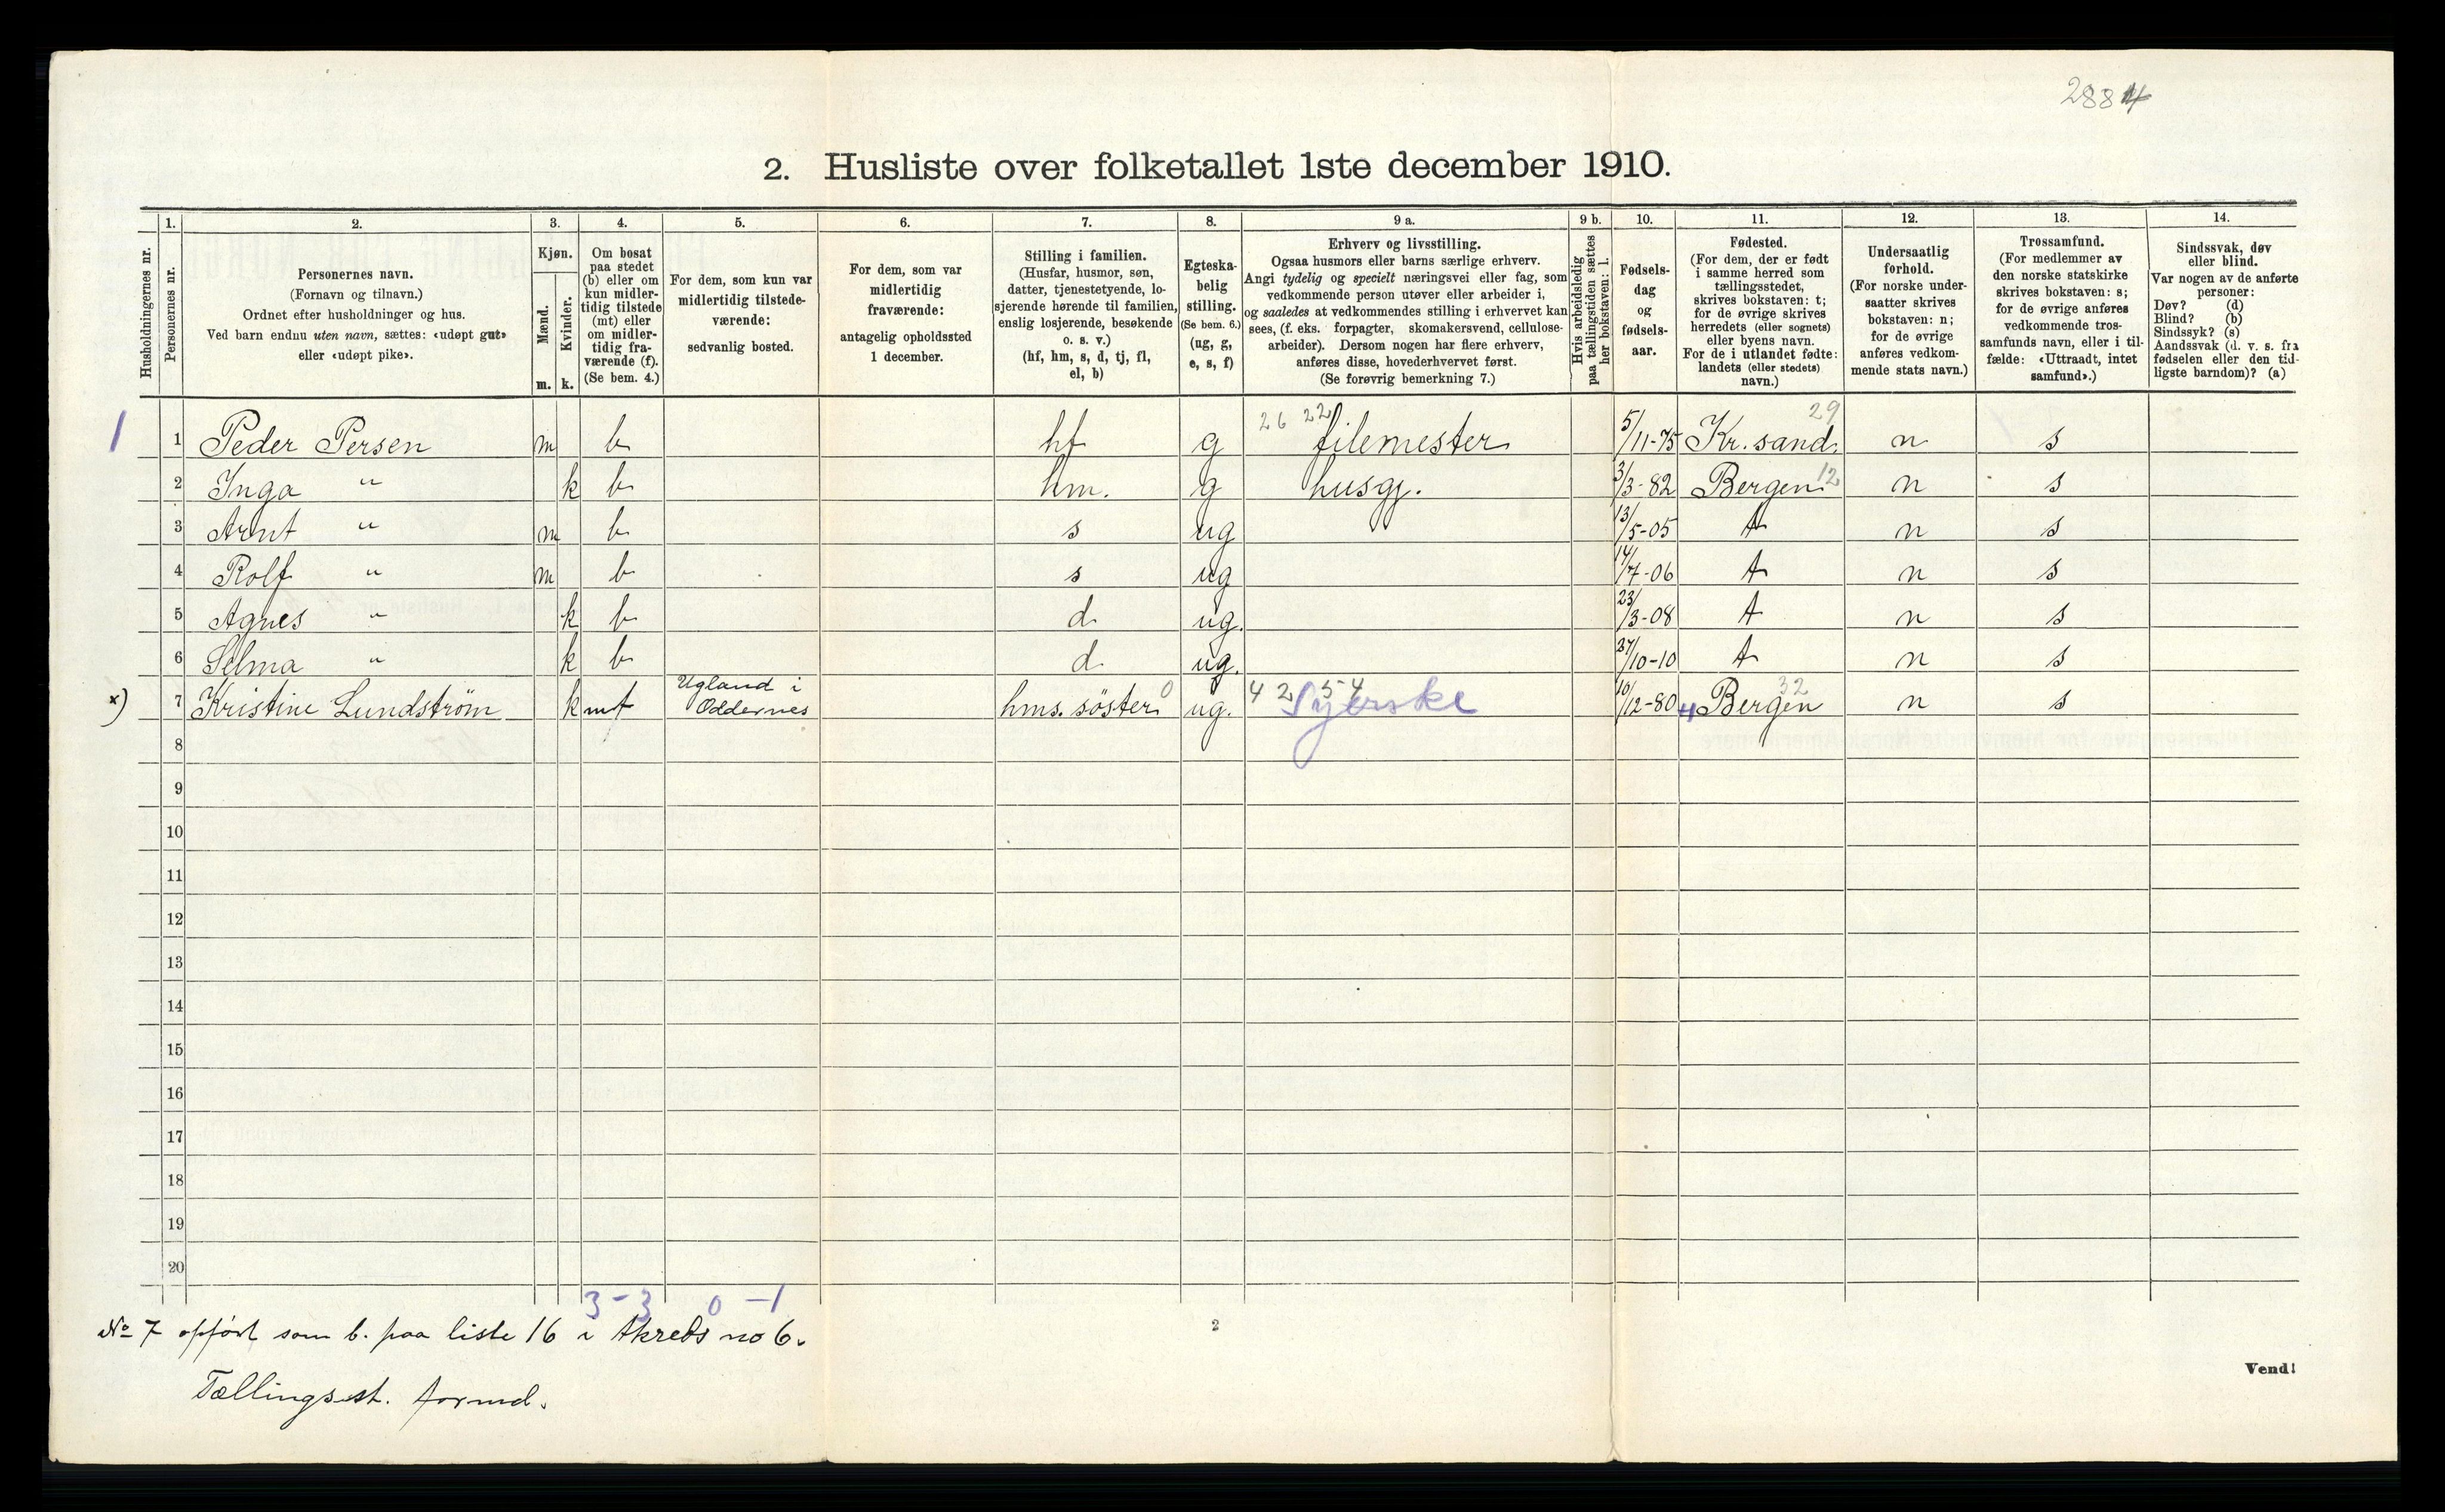 2884
2. Husliste over folketallet 1ste december 1910.
1. 2. 3. 4. 5. 6. 7. 8. 9 a. 9 b. 10. 11. 12. 13. 14.
Husholdningernes nr.
Personernes nr.
Personernes navn.
(Fornavn og tilnavn.)
Ordnet efter husholdninger og hus.
Ved barn endnu uten navn, sættes: «udøpt gut»
eller «udøpt pike».
Kjøn.
Mænd.
Kvinder.
m. k.
Om bosat
paa stedet
(b) eller om
kun midler-
tidig tilstede
(mt) eller
om midler-
tidig fra-
værende (f).
(Se bem. 4.)
For dem, som kun var
midlertidig tilstede-
værende:
sedvanlig bosted.
For dem, som var
midlertidig
fraværende:
antagelig opholdssted
1 december.
Stilling i familien.
(Husfar, husmor, søn,
datter, tjenestetyende, lo-
sjerende hørende til familien,
enslig losjerende, besøkende
o. s. v.)
(hf, hm, s, d, tj, fl,
el, b)
Egteska-
belig
stilling.
(Se bem. 6.)
(ug, g,
e, s, f)
Erhverv og livsstilling.
Ogsaa husmors eller barns særlige erhverv.
Angi tydelig og specielt næringsvei eller fag, som
vedkommende person utøver eller arbeider i,
og saaledes at vedkommendes stilling i erhvervet kan
sees, (f. eks. forpagter, skomakersvend, cellulose-
arbeider). Dersom nogen har flere erhverv,
anføres disse, hovederhvervet først.
(Se forøvrig bemerkning 7.)
Hvis arbeidsledig
paa tællingstiden sættes
her bokstaven: l.
Fødsels-
dag
og
fødsels-
aar.
Fødested.
(For dem, der er født
i samme herred som
tællingsstedet,
skrives bokstaven: t;
for de øvrige skrives
herredets (eller sognets)
eller byens navn.
For de i utlandet fødte:
landets (eller stedets)
navn.)
Undersaatlig
forhold.
(For norske under-
saatter skrives
bokstaven: n;
for de øvrige
anføres vedkom-
mende stats navn.)
Trossamfund.
(For medlemmer av
den norske statskirke
skrives bokstaven: s;
for de øvrige anføres
vedkommende tros-
samfunds navn, eller i til-
fælde: «Uttraadt, intet
samfund».)
Sindssvak, døv
eller blind.
Var nogen av de anførte
personer:
Døv? (d)
Blind? (b)
Sindssyk? (s)
Aandssvak (d. v. s. fra
fødselen eller den tid-
ligste barndom)? (a)
26 22 29
1 1 Peder Persen m b hf g filemester 5/11-75 Kr.sand. n s
2 Inga " k b hm. g husgj. 3/3-82 Bergen 12 n s
3 Arnt " m b s ug 13/5-05 t n s
4 Rolf " m b s ug 14/7-06 t n s
5 Agnes " k b d ug. 23/3-08 t n s
6 Selma " k b d ug. 27/10-10 t n s
x) 7 Kristine Lundström k mt Ugland i Oddernes hms. söster 0 ug. 42 54 Syerske 10/12-80 4 Bergen 32 n s
8
9
10
11
12
13
14
15
16
17
18
19
20
3-3 0-1
No 7 opført som b. paa liste 16 i tkreds no 6.
Tællingsst. formd.
2
Vend!